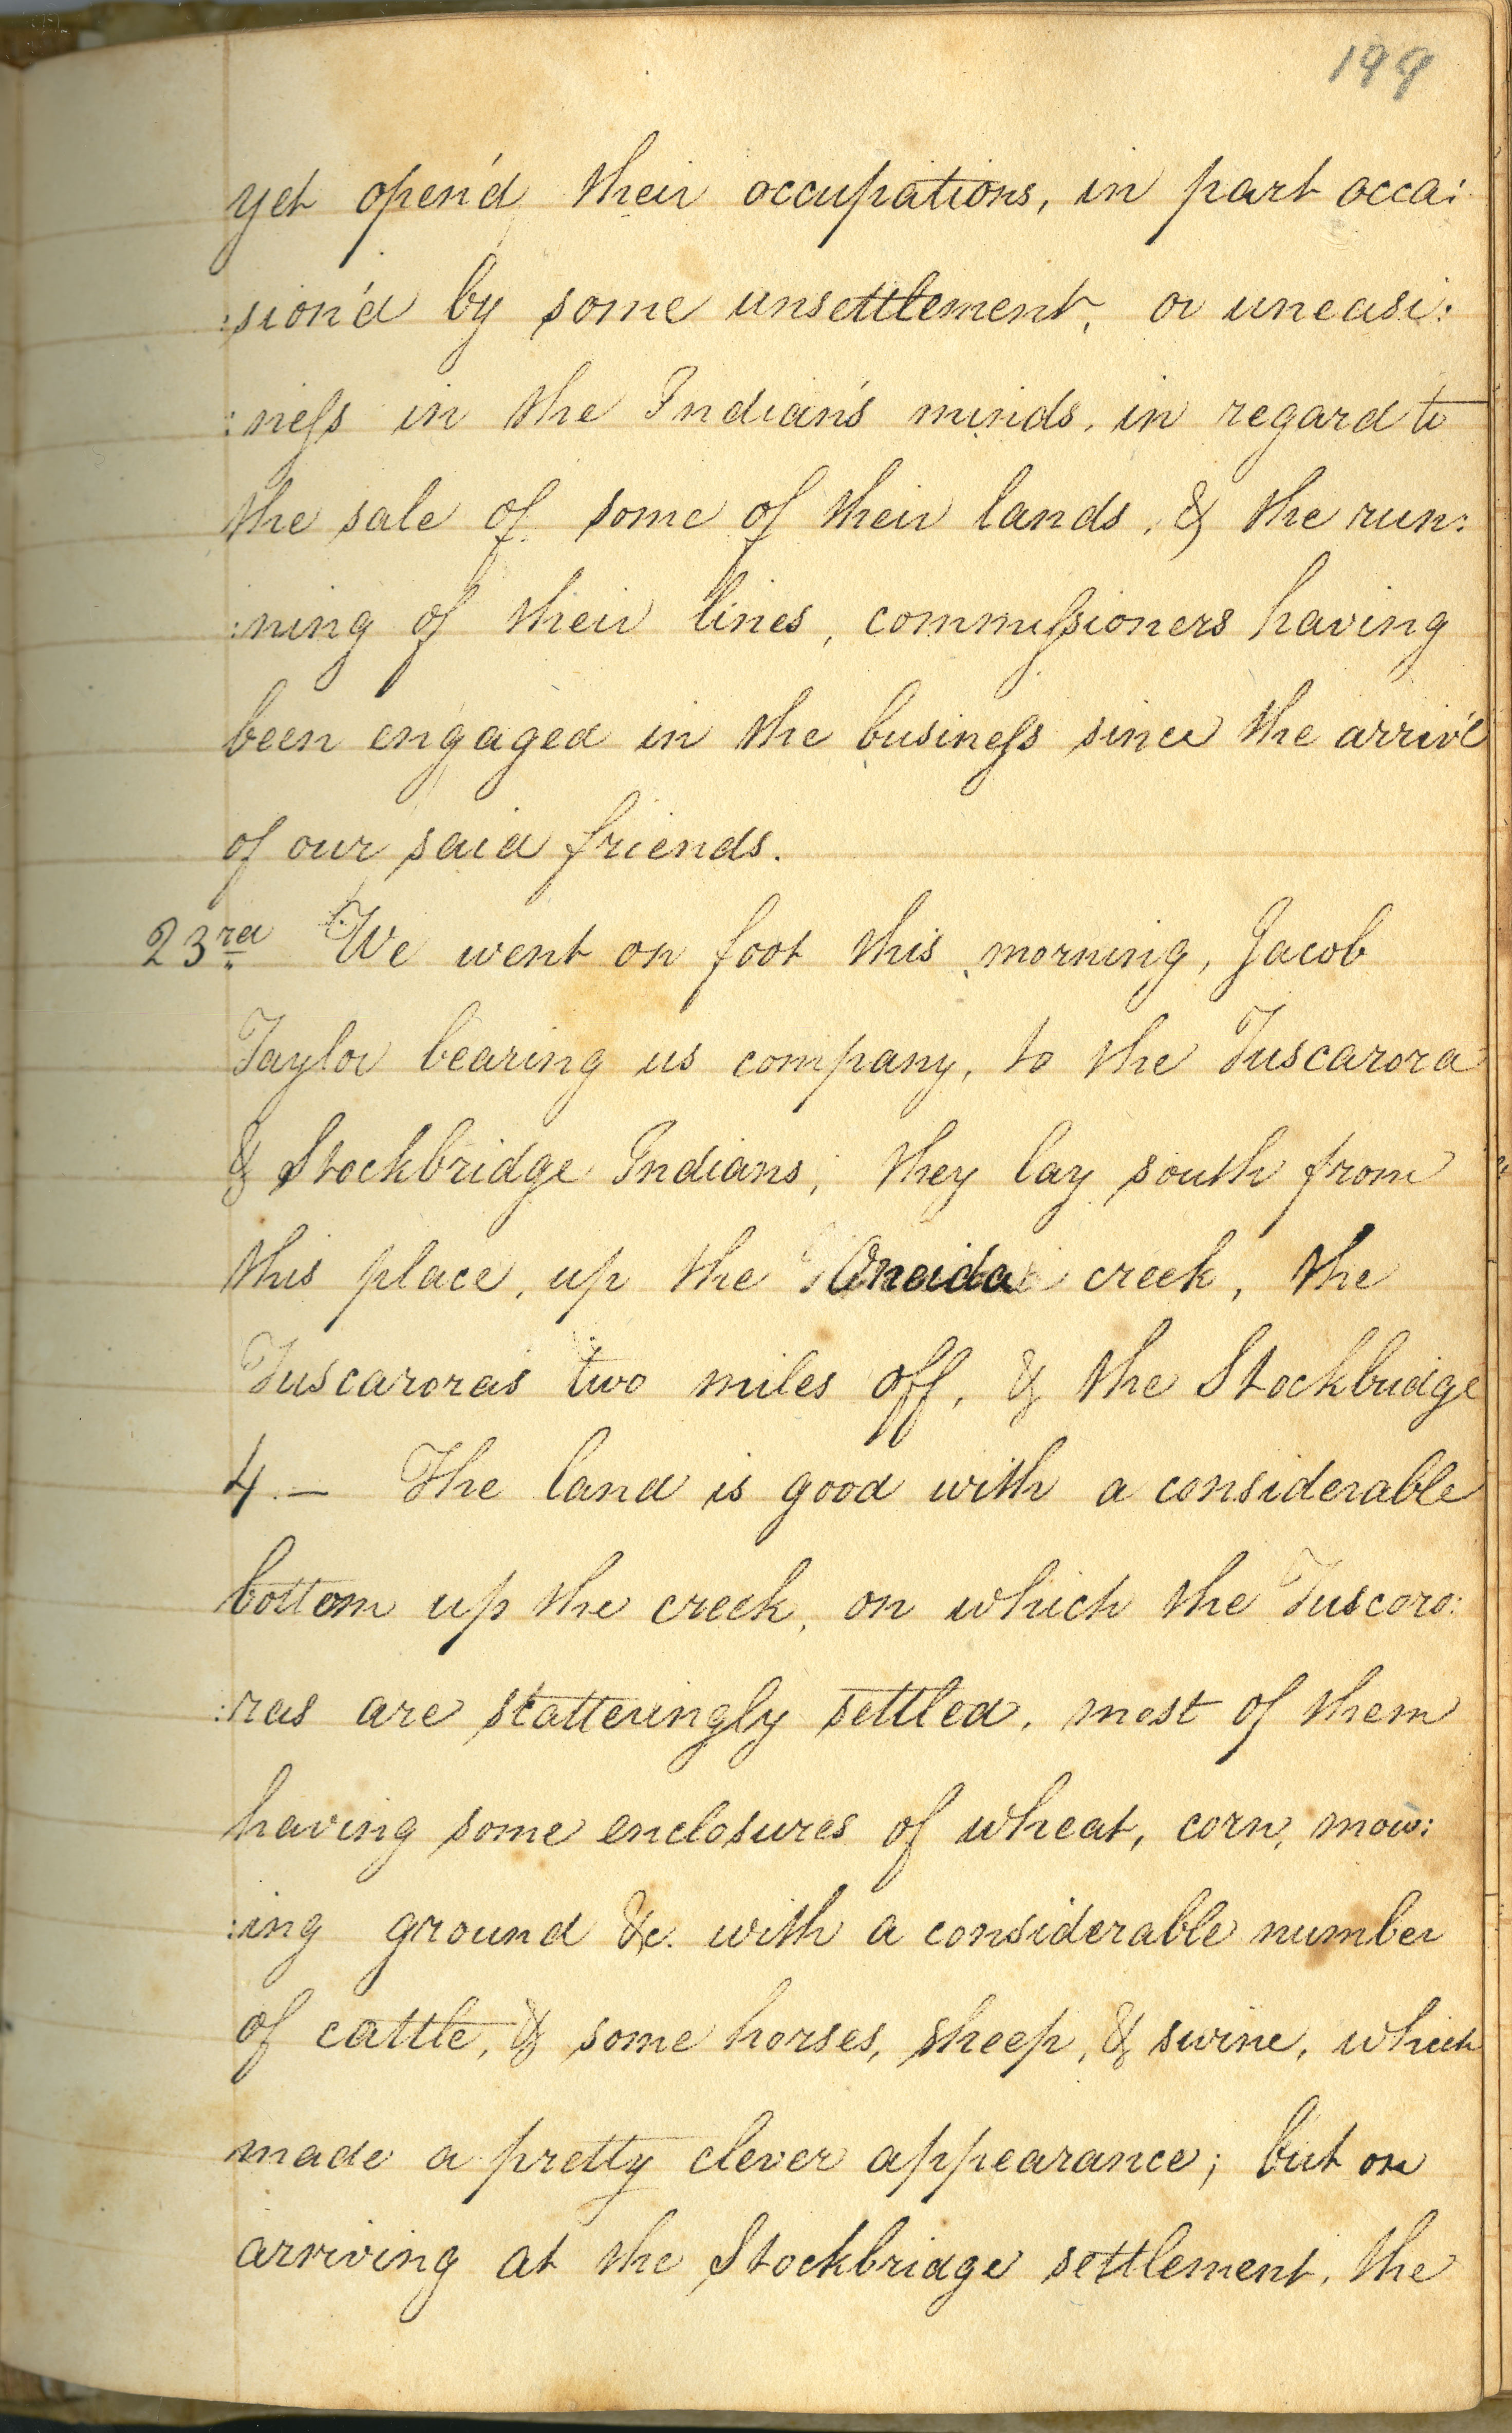 199
yet open'd their occupations, in part occa:
:sion'd by some unsettlement, or uneasi:
:ness in the Indian's minds, in regard to
the sale of some of their lands, & the run:
:ning of their lines, commissioners having
been engaged in the business since the arriv'l
of our said friends.
23rd We went on foot this morning, Jacob
Taylor bearing us company, to the Tuscarora
& Stockbridge Indians; they lay south from
this place, up the Oneida creek, the
Tuscarora's two miles off, & the Stockbridge
4 — The land is good with a considerable
bottom up the creek, on which the Tuscoro:
:ras are scatteringly settled, most of them
having some enclosures of wheat, corn, mow:
:ing ground &c. with a considerable number
of cattle, & some horses, sheep, & swine, which
made a pretty clever appearance; but on
arriving at the Stockbridge settlement, the